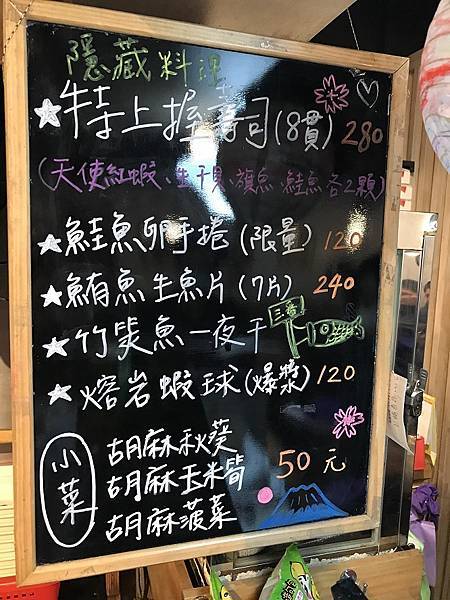 隱藏料理
★特上握壽司(8貫) 280
(天使紅蝦、生干貝、旗魚、鮭魚各2顆)
★鮭魚卵手捲(限量) 120
★鮪魚生魚片(7片) 240
★竹筴魚一夜干
★熔岩蝦球(爆漿) 120
小菜
胡麻秋葵
胡麻玉米筍 50元
胡麻菠菜